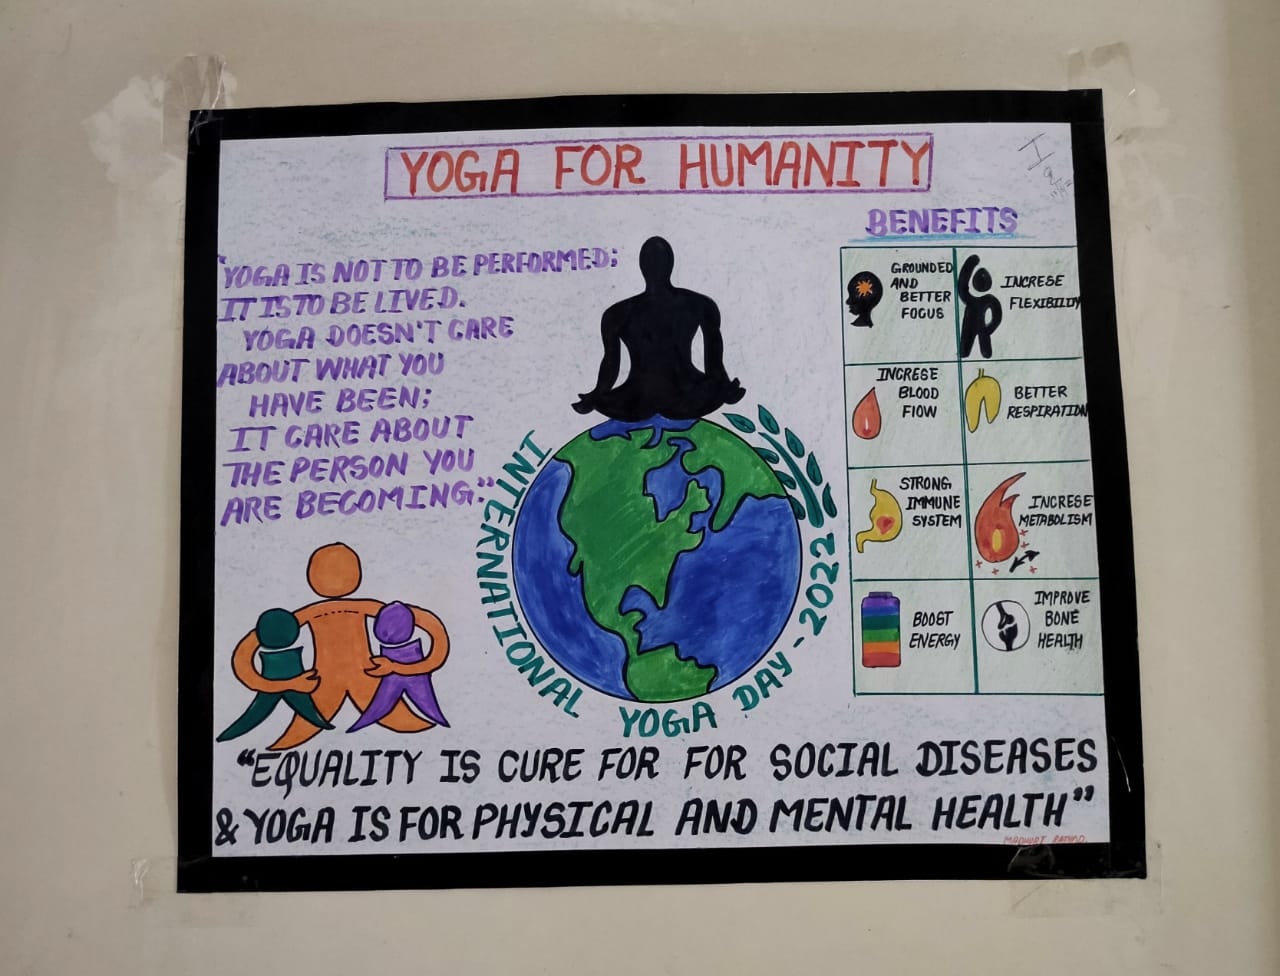 YOGA FOR HUMANITY
"YOGA IS NOT TO BE PERFORMED;
IT IS TO BE LIVED.
YOGA DOESN'T CARE
ABOUT WHAT YOU
HAVE BEEN;
IT CARE ABOUT
THE PERSON YOU
ARE BECOMING."
INTERNATIONAL YOGA DAY - 2022
BENEFITS
GROUNDED
AND
BETTER
FOCUS
INCRESE
FLEXIBILIIY
INCRESE
BLOOD
FlOW
BETTER
RESPIRATION
STRONG
IMMUNE
SYSTEM
INCRESE
METABOLISM
BOOST
ENERGY
IMPROVE
BONE
HEALTH
"EQUALITY IS CURE FOR FOR SOCIAL DISEASES
& YOGA IS FOR PHYSICAL AND MENTAL HEALTH"